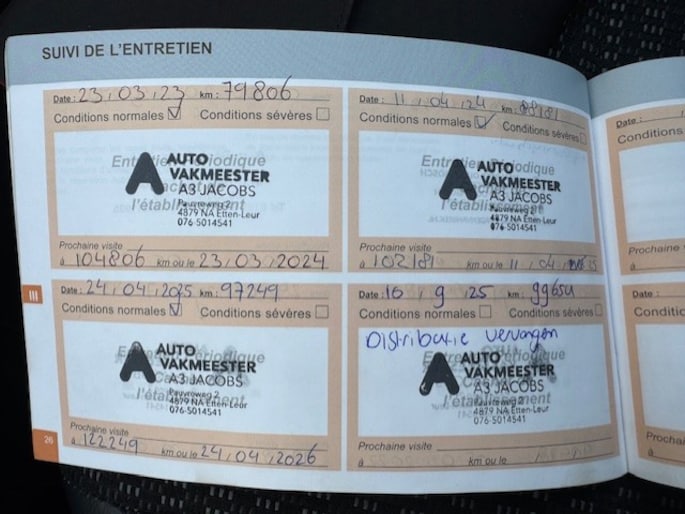 SUIVI DE L'ENTRETIEN
Date : 23 , 03 , 23 km : 79806
Conditions normales ☑ Conditions sévères ☐
Entretien Périodique
AUTO
VAKMEESTER
A3 JACOBS
l'établissement
Pauvreweg 2
4879 NA Etten-Leur
076-5014541
Prochaine visite
à 104806 km ou le 23,03,2024
Date : 11 , 04 , 24 km : 88181
Conditions normales ☑ Conditions sévères ☐
Entretien Périodique
AUTO
VAKMEESTER
A3 JACOBS
l'établissement
Pauvreweg 2
4879 NA Etten-Leur
076-5014541
Prochaine visite
à 102181 km ou le 11 , 04 , 25
Date : 24 , 04 , 2025 km : 97249
Conditions normales ☑ Conditions sévères ☐
Entretien Périodique
AUTO
VAKMEESTER
A3 JACOBS
l'établissement
Pauvreweg 2
4879 NA Etten-Leur
076-5014541
Prochaine visite
à 122249 km ou le 24,04,2026
Date : 16 , 9 , 25 km : 99654
Conditions normales ☐ Conditions sévères ☐
Distributie vervangen
Périodique
AUTO
VAKMEESTER
A3 JACOBS
l'établissement
Pauvreweg 2
4879 NA Etten-Leur
076-5014541
Prochaine visite
à km ou le
III
26
Date :
Conditions
Prochaine
à
Date :
Prochaine
à